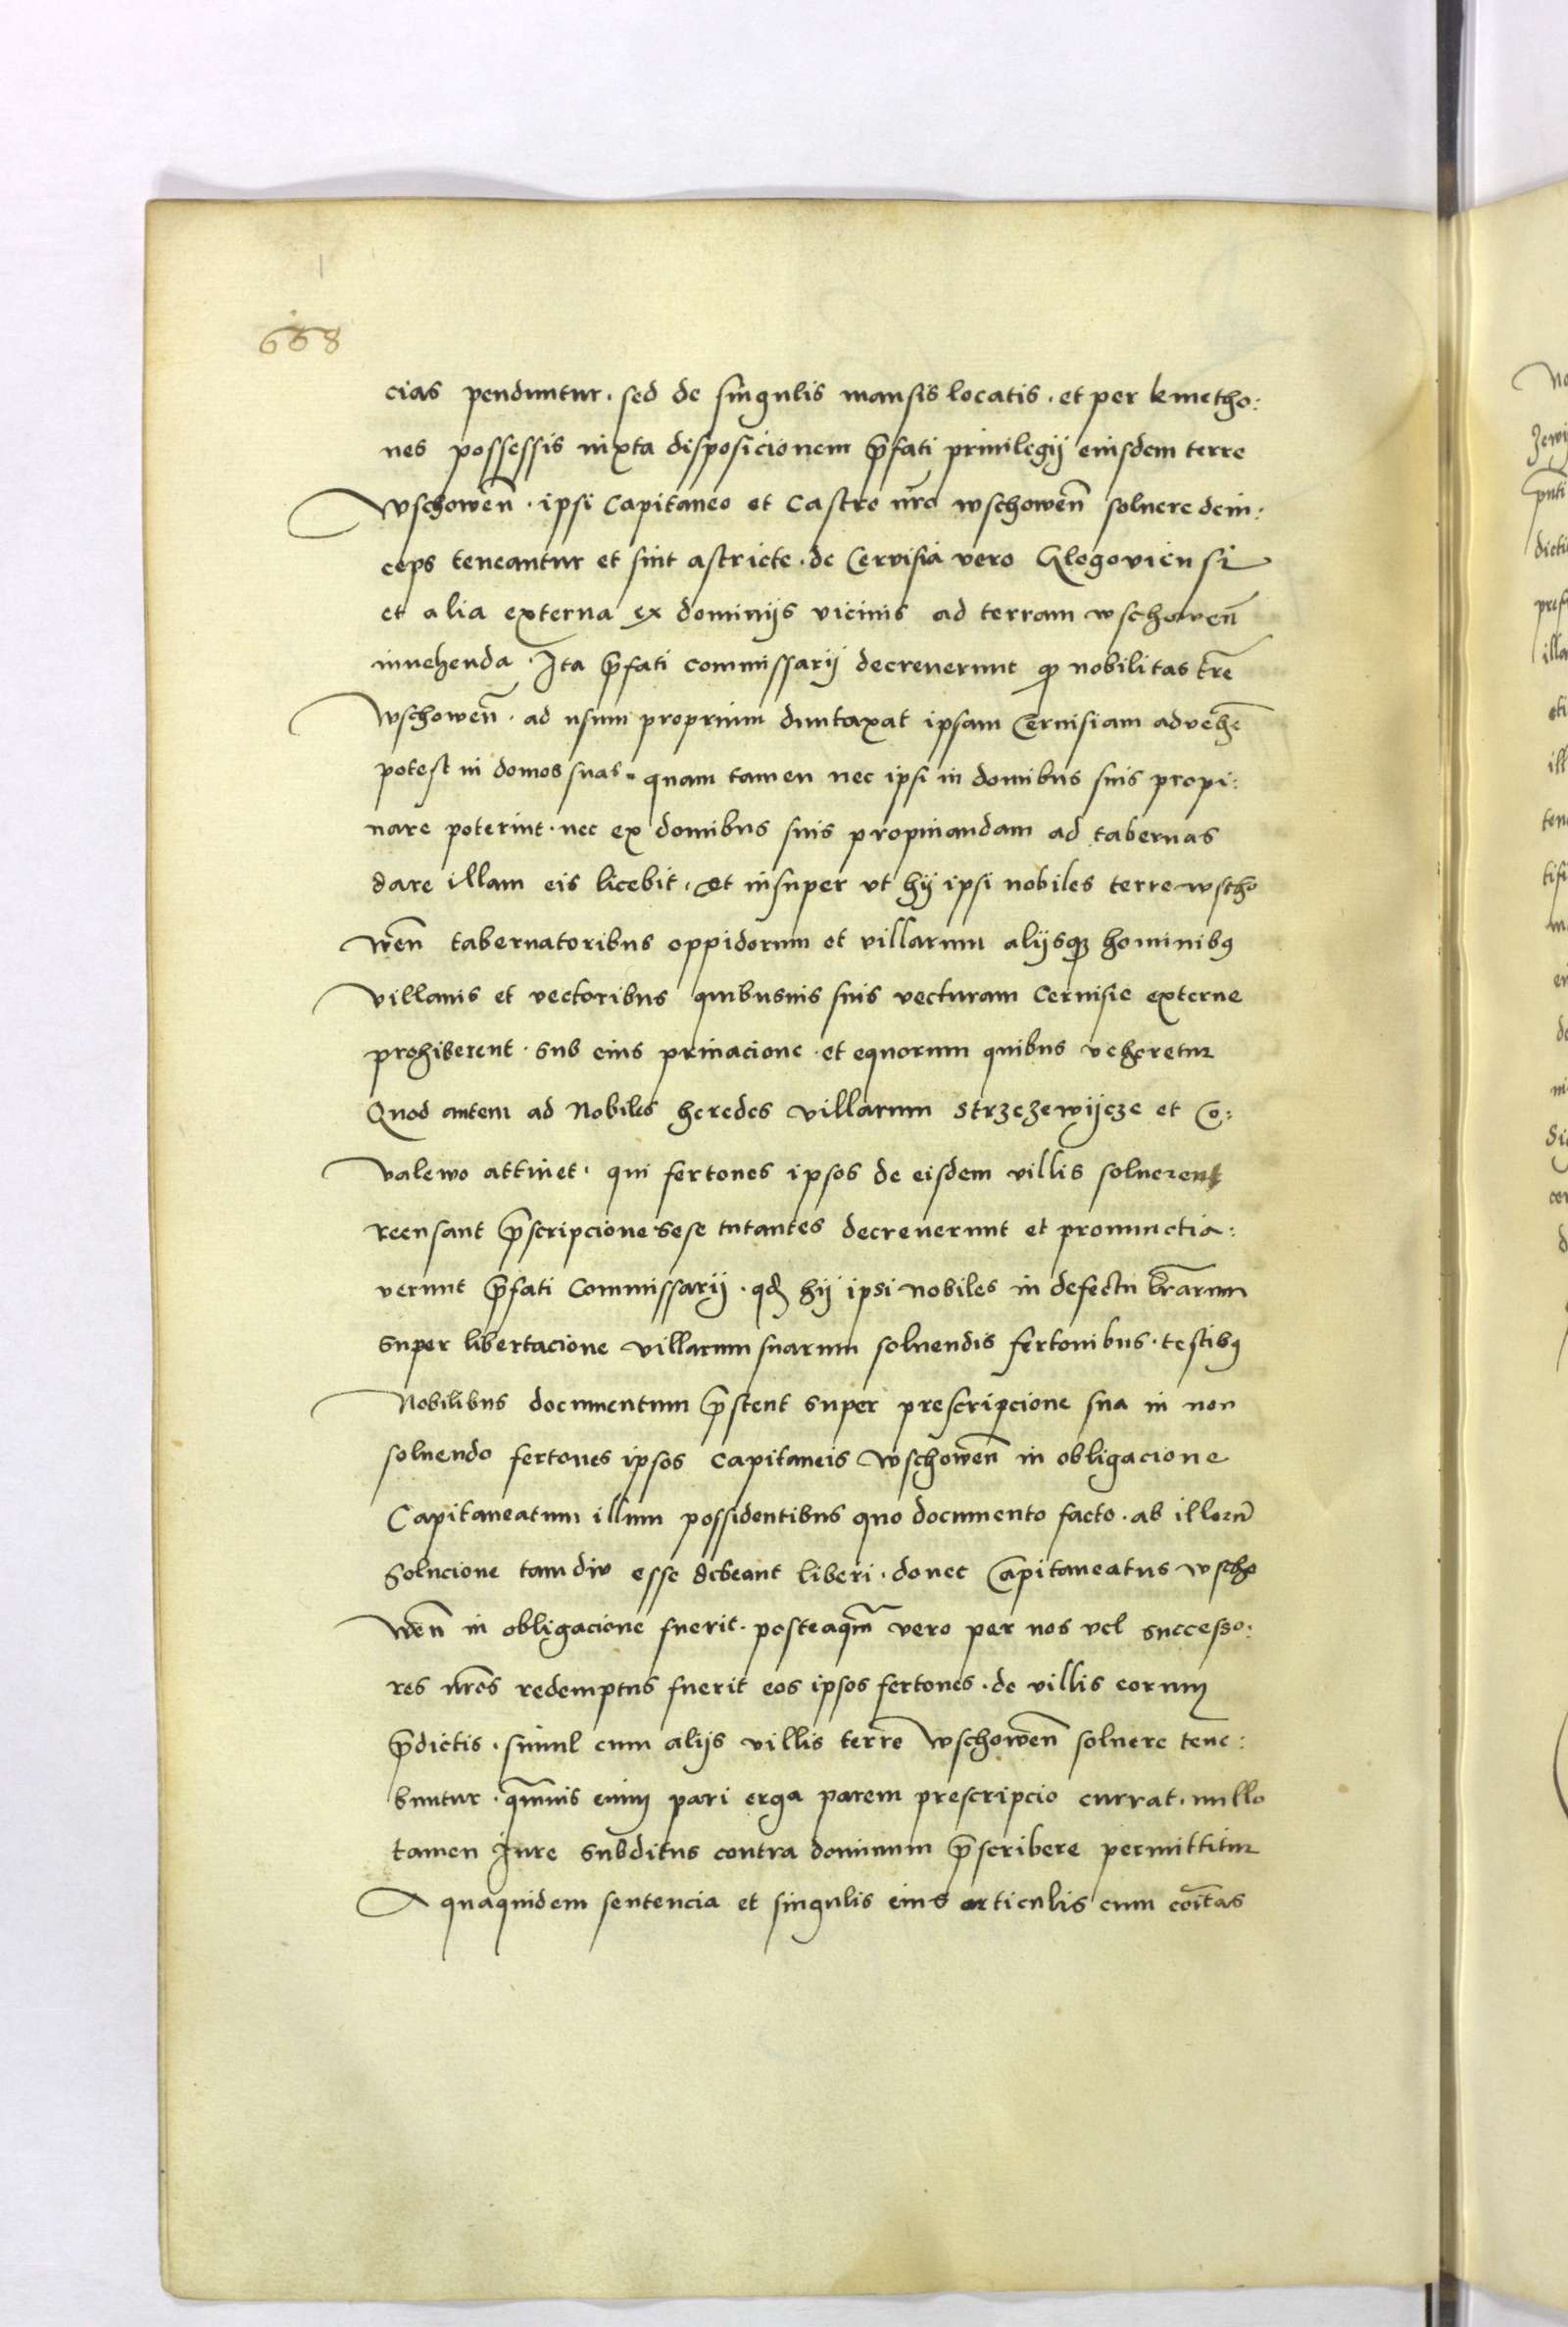 668
cias penduntur. sed de singulis mansis locatis. et per kmetho:
nes possessis iuxta disposicionem p̄fati priuilegij eiusdem terre
wschoweñ. ipsi Capitaneo et Castro nr̄o wschoweñ soluere dein:
ceps teneantur et sint astricte. de Cervisia vero Glogoviensi
et alia externa ex dominijs vicinis ad terram wschoweñ
inuehenda. Ita p̄fati commissarij decreuerunt ꝙ nobilitas tr̄e
wschoweñ. ad usum proprium duntaxat ipsam Ceruisiam advehe͂
potest in domos suas. quam tamen nec ipsi in domibus suis propi:
nare poterint. nec ex domibus suis propinandam ad tabernas
dare illam eis licebit. Et insuper vt hij ipsi nobiles terre wscho
weñ tabernatoribus oppidorum et villarum alijsqꝫ hominibꝯ
villanis et vectoribus quibusuis suis vecturam Ceruisie externe
prohiberent. sub eius priuacione. et equorum quibus veheretur
Quod autem ad Nobiles heredes villarum Strzezewijcze et Co:
valewo attinet. qui fertones ipsos de eisdem villis soluerent
reensant p̄scripcione sese tutantes decreuerunt et pronunctia:
verunt p̄fati Commissarij. qđ hij ipsi nobiles in defectu lr̄arum
super libertacione villarum suarum soluendis fertonibus. testibꝯ
Nobilibus documentum p̄stent super prescripcione sua in non
soluendo fertones ipsos Capitaneis wschoweñ in obligacione
Capitaneatum illum possidentibus quo documento facto. ab illorū
Solucione tamdiu esse debeant liberi. donec Capitaneatus wscho
weñ in obligacione fuerit. posteaqm̄ vero per nos vel successo:
res nr̄os redemptus fuerit eos ipsos fertones. de villis eorum
p̄dictis. simul cum alijs villis terre wschoweñ soluere tene:
buntur. qm̄uis enim pari erga parem prescripcio currat. nullo
tamen Iure subditus contra dominum p̄scribere permittitur
A quaquidem sentencia et singulis eius articulis cum coītas